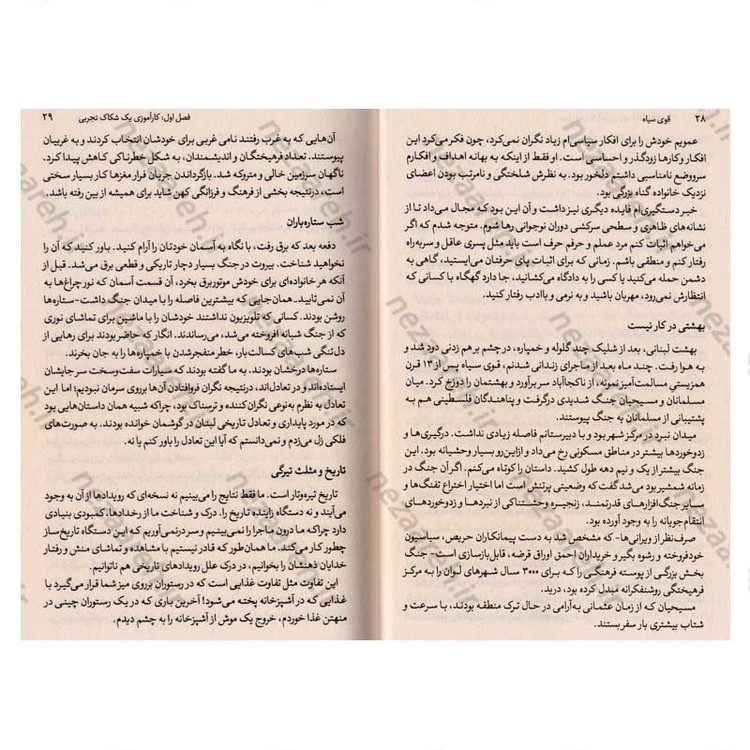 ۲۸ قوی سیاه
عمویم خودش را برای افکار سیاسی‌ام زیاد نگران نمی‌کرد، چون فکر می‌کرد این
افکار و کارها زودگذر و احساسی است. او فقط از اینکه به بهانه اهداف و افکارم
سرووضع نامناسبی داشتم دلخور بود. به نظرش شلختگی و نامرتب بودن اعضای
نزدیک خانواده گناه بزرگی بود.
خبر دستگیری‌ام فایده دیگری نیز داشت و آن این بود که مجال می‌داد تا از
نشانه‌های ظاهری و سطحی سرکشی دوران نوجوانی رها شوم. متوجه شدم که اگر
می‌خواهم اثبات کنم مرد عملم و حرفم حرف است باید مثل پسری عاقل و سربه‌راه
رفتار کنم و منطقی باشم. زمانی که برای اثبات پای حرفتان می‌ایستید، گاهی به
دشمن حمله می‌کنید یا کسی را به دادگاه می‌کشانید، جا دارد گهگاه با کسانی که
انتظارش نمی‌رود، مهربان باشید و به نرمی و باادب رفتار کنید.
بهشتی در کار نیست
بهشت لبنانی، بعد از شلیک چند گلوله و خمپاره، در چشم بر هم زدنی دود شد و
به هوا رفت. چند ماه بعد از ماجرای زندانی شدنم، قوی سیاه پس از ۱۳ قرن
همزیستی مسالمت‌آمیز نمونه، از ناکجاآباد سر برآورد و بهشتمان را دوزخ کرد. میان
مسلمانان و مسیحیان جنگ شدیدی درگرفت و پناهندگان فلسطینی هم به
پشتیبانی از مسلمانان به جنگ پیوستند.
میدان نبرد در مرکز شهر بود و با دبیرستانم فاصله زیادی نداشت. درگیری‌ها و
زدوخوردها بیشتر در مناطق مسکونی رخ می‌داد و ازاین‌رو بسیار وحشیانه بود. این
جنگ بیشتر از یک و نیم دهه طول کشید. داستان را کوتاه می‌کنم. اگر آن جنگ در
زمانه شمشیر بود می‌شد گفت که وضعیتی پرتنش است اما اختیار اختراع تفنگ‌ها و
سایر جنگ‌افزارهای قدرتمند، زنجیره وحشتناکی از نبردها و زدوخوردهای
انتقام‌جویانه را به وجود آورده بود.
صرف‌نظر از ویرانی‌ها- که مشخص شد به دست پیمانکاران حریص، سیاسیون
خودفروخته و رشوه بگیر و خریداران احمق اوراق قرضه، قابل‌بازسازی است- جنگ
بخش بزرگی از پوسته فرهنگی را که برای ۳۰۰۰ سال شهرهای لوان را به مرکز
فرهیختگی روشنفکرانه مبدل کرده بود، درید.
مسیحیان که از زمان عثمانی به‌آرامی در حال ترک منطقه بودند، با سرعت و
شتاب بیشتری بار سفر بستند.
فصل اول: کارآموزی یک شکاک تجربی ۲۹
آن‌هایی که به غرب رفتند نامی غربی برای خودشان انتخاب کردند و به غربیان
پیوستند. تعداد فرهیختگان و اندیشمندان، به شکل خطرناکی کاهش پیدا کرد.
ناگهان سرزمین خالی و متروکه شد. بازگرداندن جریان فرار مغزها کار بسیار سختی
است، درنتیجه بخشی از فرهنگ و فرزانگی کهن شاید برای همیشه از بین رفته باشد.
شب ستاره‌باران
دفعه بعد که برق رفت، با نگاه به آسمان خودتان را آرام کنید. باور کنید که آن را
نخواهید شناخت. بیروت در جنگ بسیار دچار تاریکی و قطعی برق می‌شد. قبل از
آنکه هر خانواده‌ای برای خودش موتور برق بخرد، آن قسمت آسمان که نور چراغ‌ها به
آن نمی‌تابید. همان‌جایی که بیشترین فاصله را با میدان جنگ داشت- ستاره‌ها
روشن بودند. کسانی که تلویزیون نداشتند خودشان را با ماشین برای تماشای نوری
که از جنگ شبانه افروخته می‌شد، می‌رساندند. انگار که حاضر بودند برای رهایی از
دل‌تنگی شب‌های کسالت‌بار، خطر منفجر شدن با خمپاره‌ها را به جان بخرند.
ستاره‌ها درخشان بودند. به ما گفته بودند که سیارات سفت‌وسخت سر جایشان
ایستاده‌اند و در تعادل‌اند، درنتیجه نگران فروافتادن آن‌ها بروی سرمان نبودیم؛ اما این
تعادل به نظرم به‌نوعی نگران کننده و ترسناک بود، چراکه شبیه همان داستان‌هایی بود
که در مورد پایداری و تعادل تاریخی لبنان در گوشمان خوانده بودند. به صورت‌های
فلکی زل می‌زدم و نمی‌دانستم که آیا این تعادل را باور کنم یا نه.
تاریخ و مثلث تیرگی
تاریخ تیره‌وتار است. ما فقط نتایج را می‌بینیم نه نسخه‌ای که رویدادها از آن به وجود
می‌آیند و نه دستگاه زاینده تاریخ را. درک و شناخت ما از رخدادها، کمبودی بنیادی
دارد چراکه ما درون ماجرا را نمی‌بینیم و سر درنمی‌آوریم که این دستگاه تاریخ‌ساز
چطور کار می‌کند. ما همان‌طور که قادر نیستیم با مشاهده و تماشای منش و رفتار
خدایان ذهنشان را بخوانیم، در درک علل رویدادهای تاریخی هم ناتوانیم.
این تفاوت مثل تفاوت غذایی است که در رستوران برروی میز شما قرار می‌گیرد با
غذایی که در آشپزخانه پخته می‌شود! آخرین باری که در یک رستوران چینی در
منهتن غذا خوردم، خروج یک موش از آشپزخانه را به چشم دیدم.
nezaareh.ir